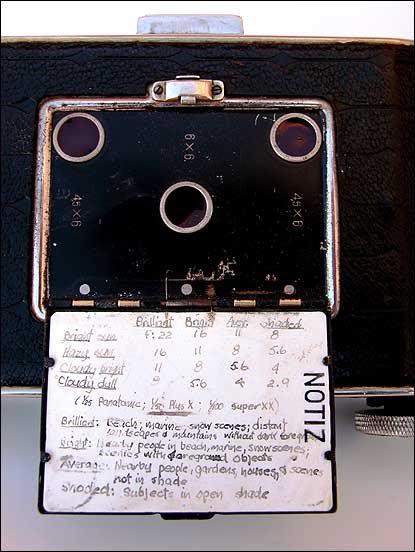 6×6.
4,5×6
4,5×6
Brilliant Bright Aver. Shaded
Bright sun f:22 16 11 8
Hazy sun, 16 11 8 5.6
Cloudy bright 11 8 5.6 4
Cloudy dull 5.6 4 2.9
(1/25 Panatomic; 1/50 Plus X; 1/100 super XX)
NOTIZ
Brilliant: Beach, marine, snow scenes; distant
landscapes & mountains without dark foregrnd
Bright: Nearby people in beach, marine, snow scenes;
scenics with foreground objects
Average: Nearby people, gardens, houses, & scenes
not in shade
Shaded: Subjects in open shade